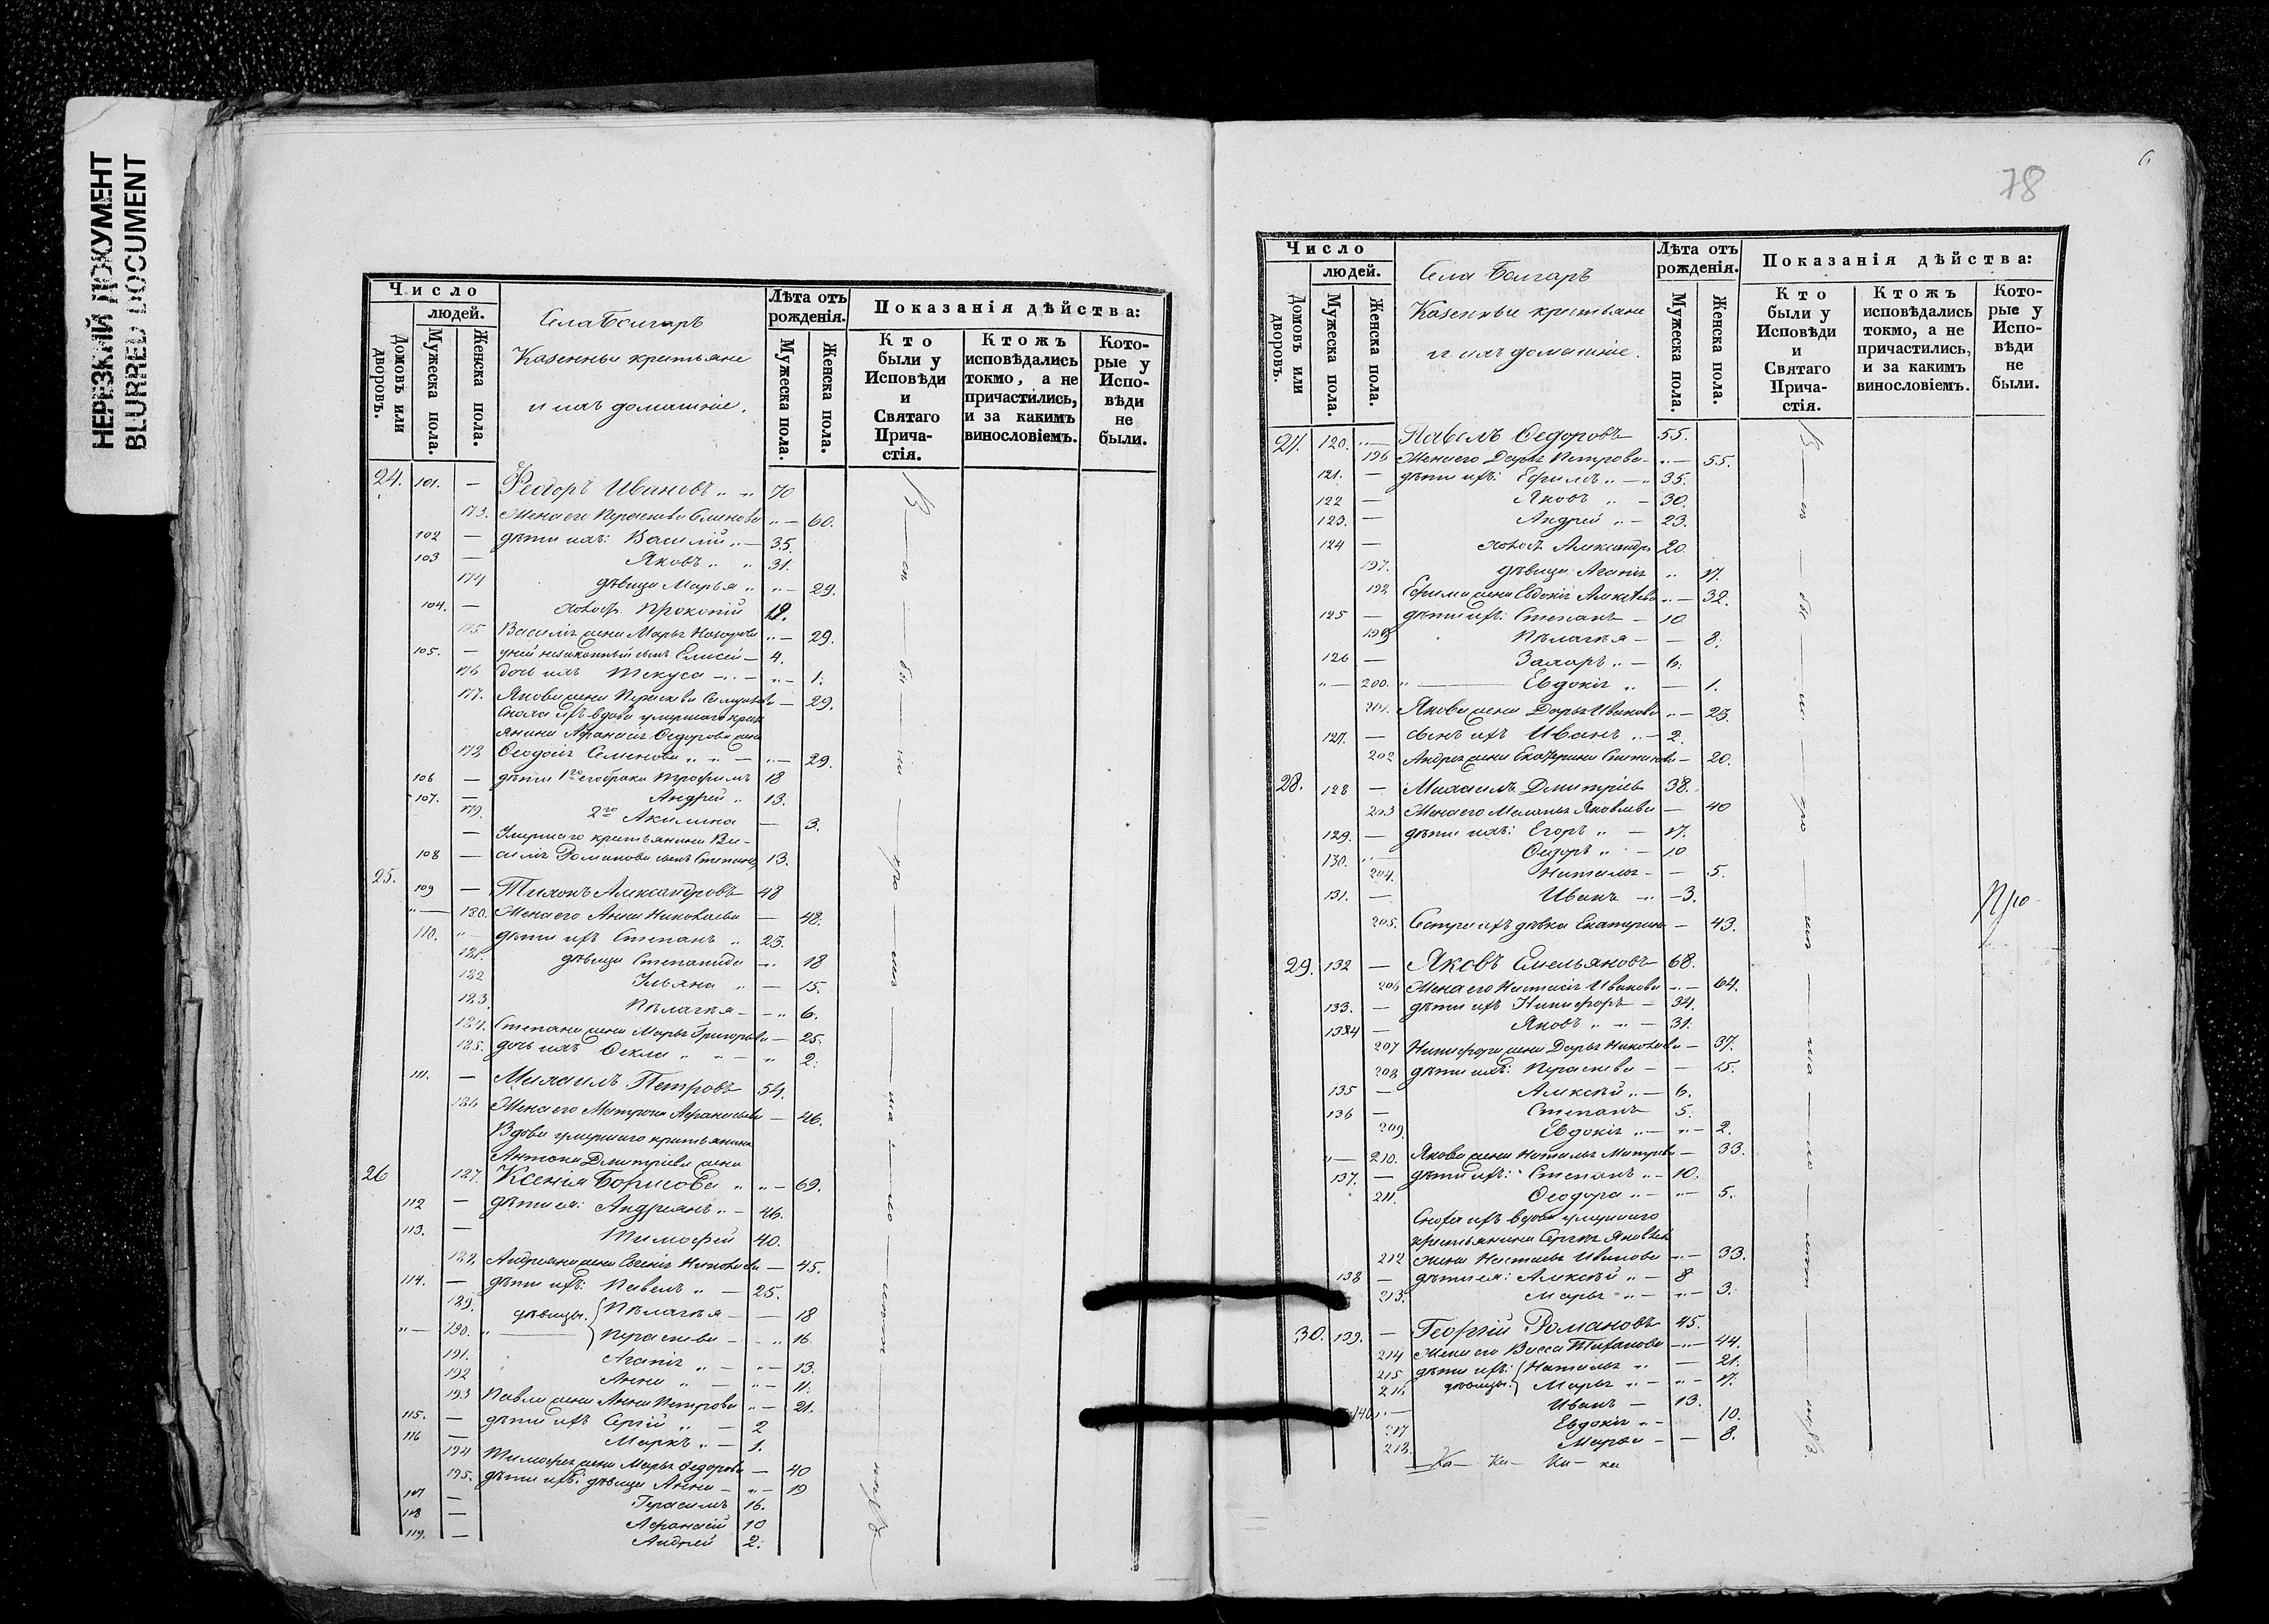 НЕРЕЗКИЙ ДОКУМЕНТ
BLURRED DOCUMENT
Число
людей.
Домовъ или дворовъ.
Мужеска пола.
Женска пола.
Села Болгаръ
Казенные крестьяне
и ихъ домашніе.
Лѣта отъ рожденія.
Мужеска пола.
Женска пола.
Показанія дѣйства:
Кто были у Исповѣди и Святаго Причастія.
Ктожъ исповѣдались токмо, а не причастились, и за какимъ винословіемъ.
Которые у Исповѣди не были.
24. 101. — Феодоръ Ивановъ 70
173. Жена его Параскева Семенова 60.
102 — дѣти ихъ: Василій 35.
103 — Яковъ 31.
174 дѣвица Марья 29.
104. — холостъ Прокопій 19.
175 Василія жена Марья 29.
105. — незаконный сынъ Елисей 4.
176 дочь ихъ Текуса 1.
177. Якова жена Параскева 29.
Сноха ихъ вдова умершаго крестьянина Афанасія Федорова жена
178 Феодосія Семенова 29.
106 — дѣти 1го его брака Трофимъ 18
107. — Андрей 13.
179. 2го Акилина 3.
— Умершаго крестьянина Ва-
108 — силія Романова сынъ Степанъ 13.
25. 109 — Тихонъ Александровъ 48
180. Жена его Анна Николаева 48.
110. дѣти ихъ Степанъ 23.
181. дѣвица Степанида 18
182 Ульяна 15.
183. Пелагѣя 6.
184. Степана жена Марья Григорьева 25.
185. дочь ихъ Фекла 2.
111. — Михаилъ Петровъ 54.
186 Жена его Матрона Афанасьева 46.
Вдова умершаго крестьянина
Антона Дмитріева жена
26 187. Ксенія Борисова 69.
112 — дѣти ея: Андреянъ 46.
113. — Тимофей 40.
188 Андреяна жена Евгенія Николаева 45.
114. — дѣти ихъ: Павелъ 25.
189. дѣвицы: Пелагѣя 18
190. Параскева 16.
191. Агапія 13.
192 Анна 11.
193 Павла жена Анна Петрова 21.
115. — дѣти ихъ Сергій 2
116 — Маркъ 1.
194 Тимофея жена Марья Федорова 40
195. дѣти ихъ: дѣвица Анна 19
117 — Герасимъ 16.
118 — Афанасій 10
119. — Андрей 2.
6
78
Число
людей.
Домовъ или дворовъ.
Мужеска пола.
Женска пола.
Села Болгаръ
Казенные крестьяне
и ихъ домашніе.
Лѣта отъ рожденія.
Мужеска пола.
Женска пола.
Показанія дѣйства:
Кто были у Исповѣди и Святаго Причастія.
Ктожъ исповѣдались токмо, а не причастились, и за какимъ винословіемъ.
Которые у Исповѣди не были.
27. 120. Павелъ Федоровъ 55.
196 Жена его Дарья Петрова 55.
121. — дѣти ихъ: Ефимъ 35.
122 — Яковъ 30.
123. — Андрей 23.
124 — холостъ Александръ 20.
197. дѣвица Агапія 17.
198 Ефима жена Евдокія Алексѣева 32.
125 — дѣти ихъ: Степанъ 10
199 Пелагѣя 8.
126 — Захаръ 6.
200. Евдокія 1.
201. Якова жена Дарья Иванова 23.
127. — сынъ ихъ Иванъ 2.
202 Андрея жена Екатерина Степанова 20.
28. 128 — Михаилъ Дмитріевъ 38.
203 Жена его Меланья Яковлева 40
129. — дѣти ихъ: Егоръ 17.
130. Федоръ 10
204. Наталья 5.
131. — Иванъ 3.
205. Сестра ихъ дѣвка Екатерина 43.
29. 132 — Яковъ Емельяновъ 68.
206 Жена его Настасія Иванова 64.
133. — дѣти ихъ Никифоръ 34.
134 — Яковъ 31.
207 Никифора жена Дарья Николаева 37.
208 дѣти ихъ: Параскева 15.
135 — Алексѣй 6.
136 — Степанъ 5.
209. Евдокія 2.
210. Якова жена Наталья 33.
137. — дѣти ихъ: Степанъ 10.
211. Феодора 5.
Сноха ихъ вдова умершаго
крестьянина Сергѣя Яковлева
212 жена Наталья Иванова 33.
138 — дѣти ея: Алексѣй 8
213. Марья 3.
30. 139. — Георгій Романовъ 45.
214 Жена его Васса 44.
215 дѣти ихъ: Наталья 21.
216 дѣвицы: Марья 17.
140. Иванъ 13.
217 Евдокія 10.
218. Марья 8.